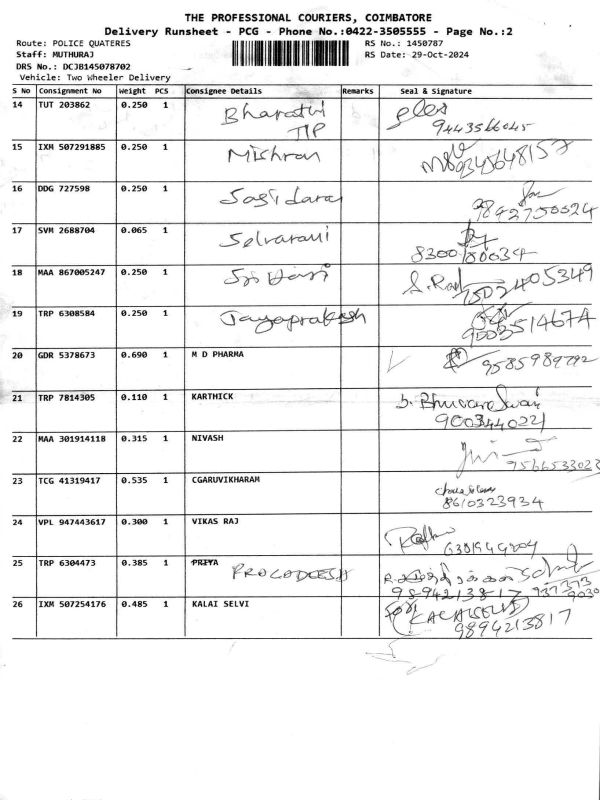 THE PROFESSIONAL COURIERS, COIMBATORE
Delivery Runsheet - PCG - Phone No.:0422-3505555 - Page No.:2
Route: POLICE QUATERES RS No.: 1450787
Staff: MUTHURAJ RS Date: 29-Oct-2024
DRS No.: DCJB145078702
Vehicle: Two Wheeler Delivery
S No Consignment No Weight PCS Consignee Details Remarks Seal & Signature
14 TUT 203862 0.250 1 Bharathi
TIP 9443566045
15 IXM 507291885 0.250 1 Mishran 9345648157
16 DDG 727598 0.250 1
9842750024
17 SVM 2688704 0.065 1 Selvarani
8300780034
18 MAA 867005247 0.250 1 Sri Hari 7502405349
19 TRP 6308584 0.250 1 Jayaprakash 9003514674
20 GDR 5378673 0.690 1 M D PHARMA 9585989792
21 TRP 7814305 0.110 1 KARTHICK
9003440221
22 MAA 301914118 0.315 1 NIVASH
9566533023
23 TCG 41319417 0.535 1 CGARUVIKHARAM
8610323934
24 VPL 947443617 0.300 1 VIKAS RAJ
25 TRP 6304473 0.385 1 PRIYA
9894213817
26 IXM 507254176 0.485 1 KALAI SELVI KALAISELVI
9894213817